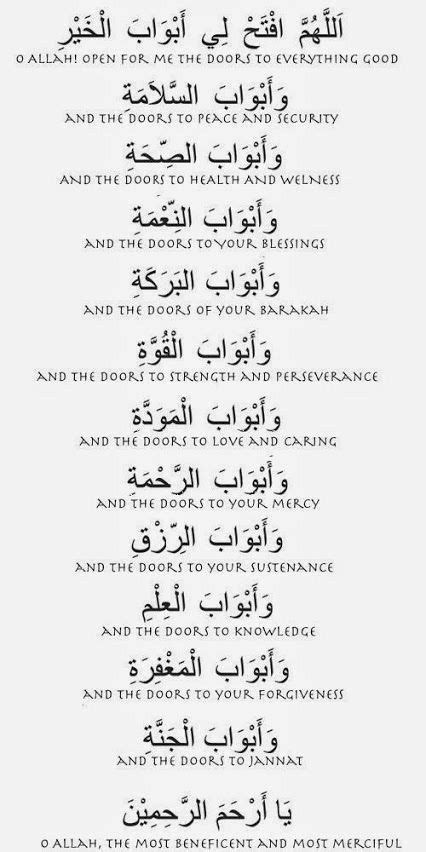 اَللَّهُمَّ افْتَحْ لِي أَبْوَابَ الْخَيْرِ
O ALLAH! OPEN FOR ME THE DOORS TO EVERYTHING GOOD
وَأَبْوَابَ السَّلاَمَةِ
AND THE DOORS TO PEACE AND SECURITY
وَأَبْوَابَ الصِّحَةِ
AND THE DOORS TO HEALTH AND WELNESS
وَأَبْوَابَ النِّعْمَةِ
AND THE DOORS TO YOUR BLESSINGS
وَأَبْوَابَ البَرَكَةِ
AND THE DOORS OF YOUR BARAKAH
وَأَبْوَابَ الْقُوَّةِ
AND THE DOORS TO STRENGTH AND PERSEVERANCE
وَأَبْوَابَ الْمَوَدَّةِ
AND THE DOORS TO LOVE AND CARING
وَأَبْوَابَ الرَّحْمَةِ
AND THE DOORS TO YOUR MERCY
وَأَبْوَابَ الرِّزْقِ
AND THE DOORS TO YOUR SUSTENANCE
وَأَبْوَابَ الْعِلْمِ
AND THE DOORS TO KNOWLEDGE
وَأَبْوَابَ الْمَغْفِرَةِ
AND THE DOORS TO YOUR FORGIVENESS
وَأَبْوَابَ الْجَنَّةِ
AND THE DOORS TO JANNAT
يَا أَرْحَمَ الرَّحِمِيْنَ
O ALLAH, THE MOST BENEFICENT AND MOST MERCIFUL